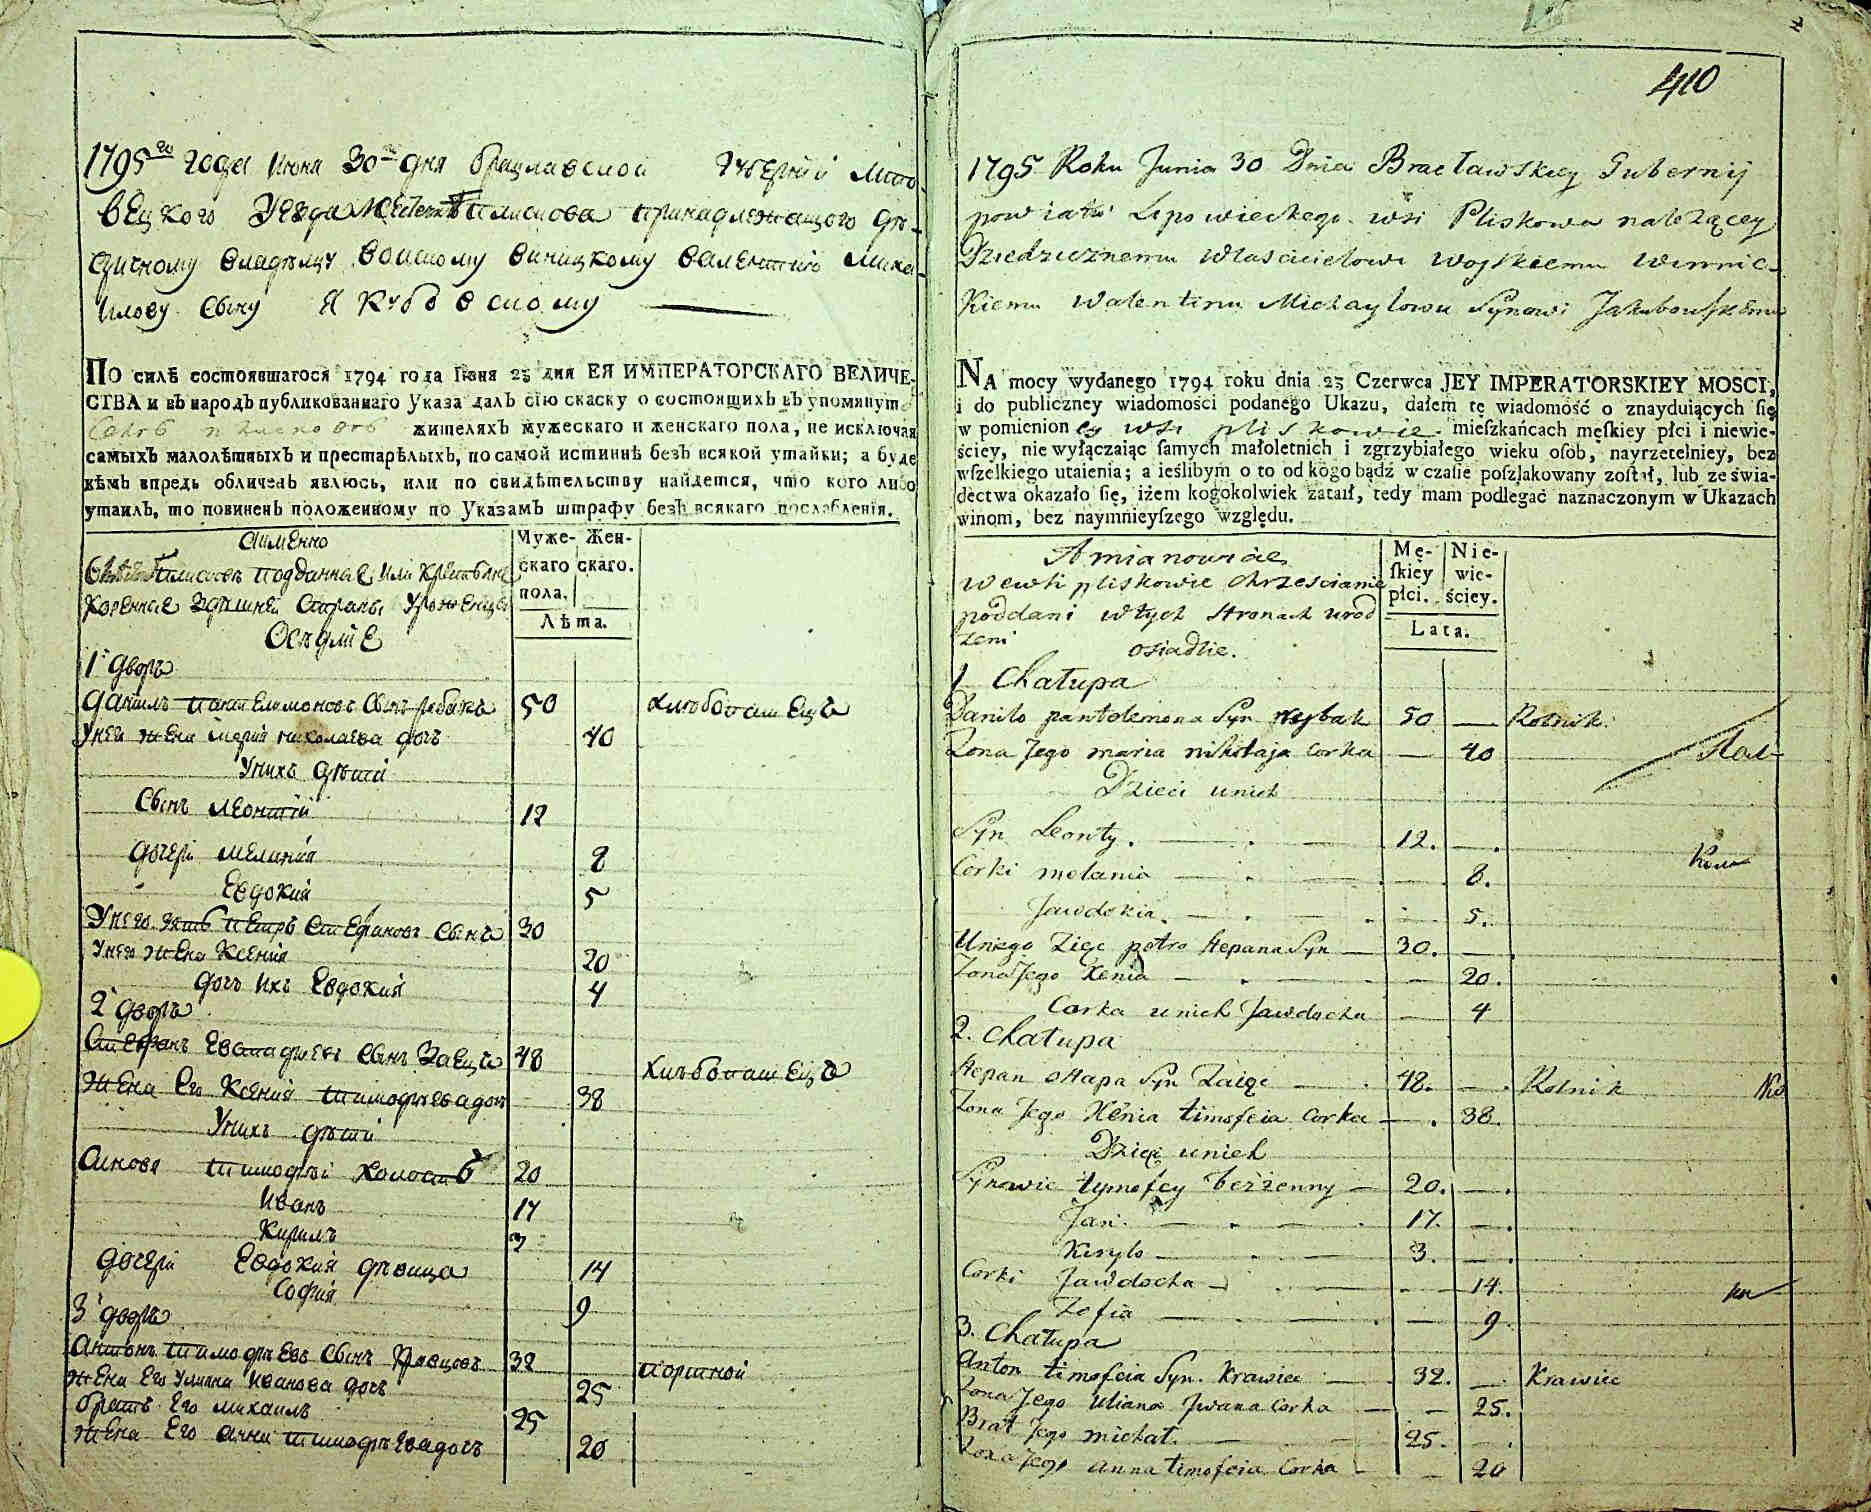 1795го года Июня 30го дня Брацлавской Губерніи Липо-
вецкого Уезда Плискова принадлежащого дѣ-
дичному владѣлцу войскому виницкому валентию Миха-
илову Сыну Якубовскому
ПО силѣ состоявшагося 1794 года Іюня 23 дня ЕЯ ИМПЕРАТОРСКАГО ВЕЛИЧЕ-
СТВА и въ народъ публикованнаго Указа далъ сію скаску о состоящихъ въ упомянут
жителяхъ мужескаго и женскаго пола, не исключая
самыхъ малолѣтныхъ и престарѣлыхъ, по самой истиннѣ безъ всякой утайки; а буде
кѣмъ впредь обличенъ явлюсь, или по свидѣтельству найдется, что кого либо
утаилъ, то повиненъ положенному по Указамъ штрафу безъ всякаго послабленія.
Аименно
подданные или крестьяне
коренные здешней стораны уроженцы
Оседлие
Муже-
скаго
пола.
Жен-
скаго.
Лѣта.
1й дворъ
Данилъ пантелимоновъ Сынъ рибакъ 50 хлѣбопашецъ
Унего жена марія николаева дочъ 40
Унихъ дѣти
Сынъ леонтій 12
дочери меланія 8
Евдокия 5
Унего зять петръ Стефановъ Сынъ 30
Унего жена Ксенія 20
дочъ ихъ Евдокия 4
2й дворъ
Стефанъ Евстафиевъ Сынъ Заецъ 48 хлѣбопашецъ
жена Его Ксения тимофѣева дочъ 38
Унихъ дѣти
Синове тимофѣй холостъ 20
Иванъ 17
Кирилъ 3
дочери Евдокия девица 14
София 9
3й дворъ
Антонъ тимофѣевъ Сынъ Кравцовъ 32 портной
жена Его Улияна Иванова дочъ 25
братъ Его михаилъ 25
жена Его анна тимофѣева дочъ 20
410
1795 Roku Junia 30 Dnia Bracławskiey Gubernij
powiatu Lipowieckego wsi Pliskowa należącey
Dziedzicznemu właścicielowi woyskiemu winnic-
kiemu walentinu Michayłowu Synowi Jakubowskiemu
NA mocy wydanego 1794 roku dnia 23 Czerwca JEY IMPERATORSKIEY MOSCI,
i do publiczney wiadomości podanego Ukazu, dałem tę wiadomość o znayduiących się
w pomienioney wsi pliskowie mieszkańcach męſkiey płci i niewie-
ściey, nie wyłączaiąc ſamych małoletnich i zgrzybiałego wieku oſób, nayrzetelniey, bez
wſzelkiego utaienia; a ieślibym o to od kogo bądź w czaſie poſzlakowany zoſtał, lub ze świa-
dectwa okazało ſię, iżem kogokolwiek zataił, tedy mam podlegać naznaczonym w Ukazach
winom, bez naymnieyſzego względu.
A mianowicie
wewsi pliskowie chrzescianie
poddani wtych stronach urod
zeni osiadlie.
Mę-
ſkiey
płci.
Nie-
wie-
ściey.
Lata.
1 Chałupa
Daniło pantelemona Syn rybak 50 — Rolnik.
Zona Jego maria nikołaja Corka — 40
Dzieci unich
Syn Leonty. 12. —
Corki melania — 8.
Jawdokia. — 5.
Uniego Zięc petro stepana Syn — 30. —
Zona Jego Xenia — 20.
Corka unich Jawdocha — 4
2. Chałupa
Stepan ostapa Syn Zaiąc — 48. — Rolnik
Zona Jego Xenia timofeia Corka — 38.
Dzieci unich
Synowie tymofey bezżenny — 20. —
Jan. — 17. —
Kirylo — 3. —
Corki Jawdocha — 14.
Zofia — 9
3. Chałupa
Anton timofeia Syn. Krawiec — 32. — Krawiec
Zona Jego Uliana Jwana Corka — 25.
Brat Jego michał. — 25. —
Zona Jego anna timofeia Corka — 20